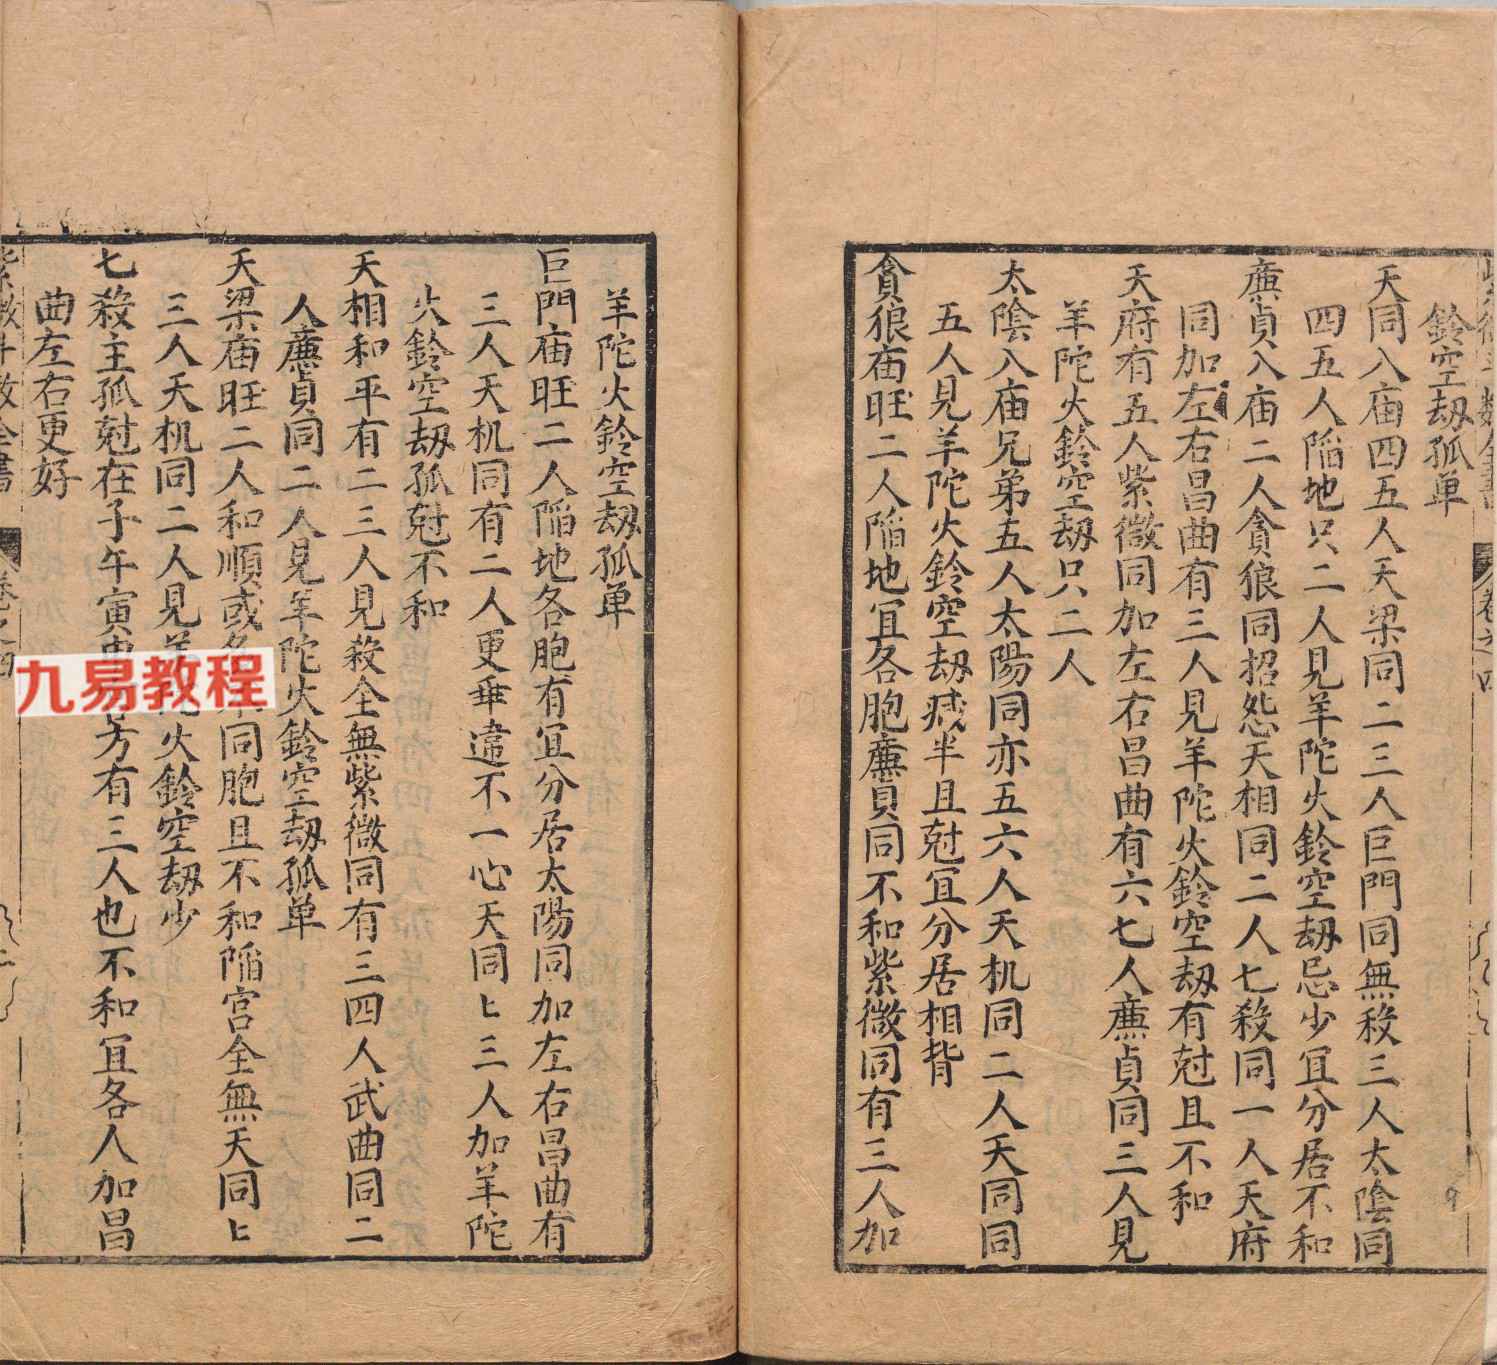 鈴空刼孤单
天同入庙四五人天梁同二三人巨門同無殺三人太陰同
四五人陥地只二人見羊陀火鈴空刼忌少冝分居不和
亷貞入庙二人貪狼同招怨天相同二人七殺同一人天府
同加左右昌曲有三人見羊陀火鈴空刼有尅且不和
天府有五人紫微同加左右昌曲有六七人亷貞同三人見
羊陀火鈴空刼只二人
太陰入庙兄弟五人太陽同亦五六人天机同二人天同同
五人見羊陀火鈴空刼减半且尅冝分居相背
貪狼庙旺二人陥地冝各胞亷貞同不和紫微同有三人加
羊陀火鈴空刼孤单
巨門庙旺二人陥地各胞有冝分居太陽同加左右昌曲有
三人天机同有二人更垂違不一心天同同三人加羊陀
火鈴空刼孤尅不和
天相和平有二三人見殺全無紫微同有三四人武曲同二
人亷貞同二人見羊陀火鈴空刼孤单
天梁庙旺二人和順或多同胞且不和陥宫全無天同同
三人天机同二人見羊火鈴空刼少
七殺主孤尅在子午寅申方有三人也不和冝各人加昌
曲左右更好
紫微斗数全書 卷之四
九易教程